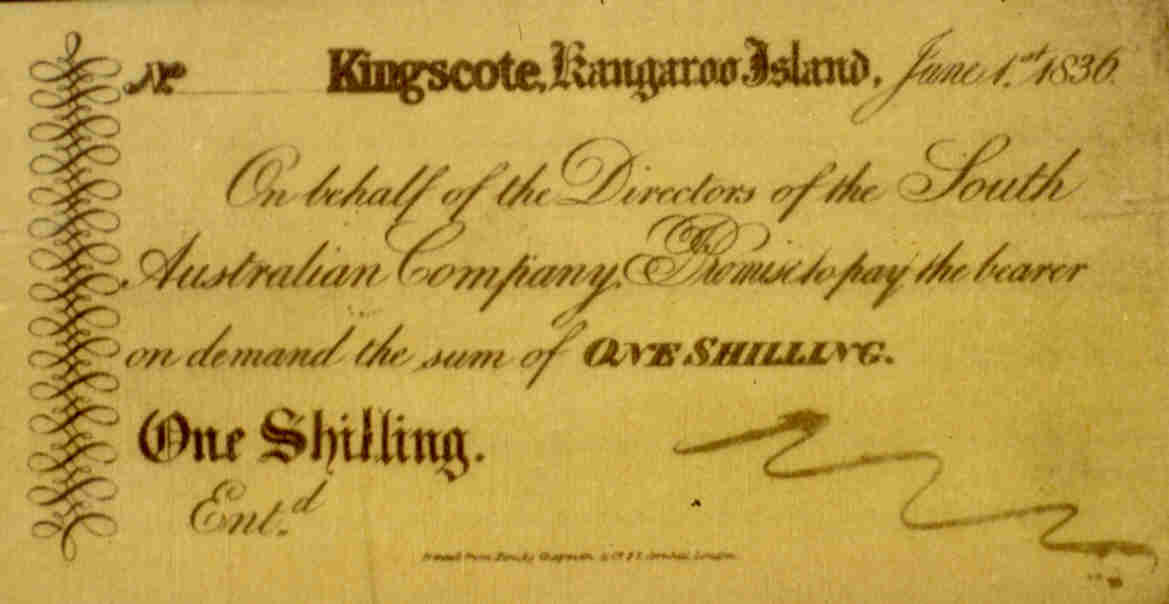 No Kingscote, Kangaroo Island, June 1.st 1836.
On behalf of the Directors of the South
Australian Company, I Promise to pay the bearer
on demand the sum of ONE SHILLING.
One Shilling.
Ent.d
Cornhill London